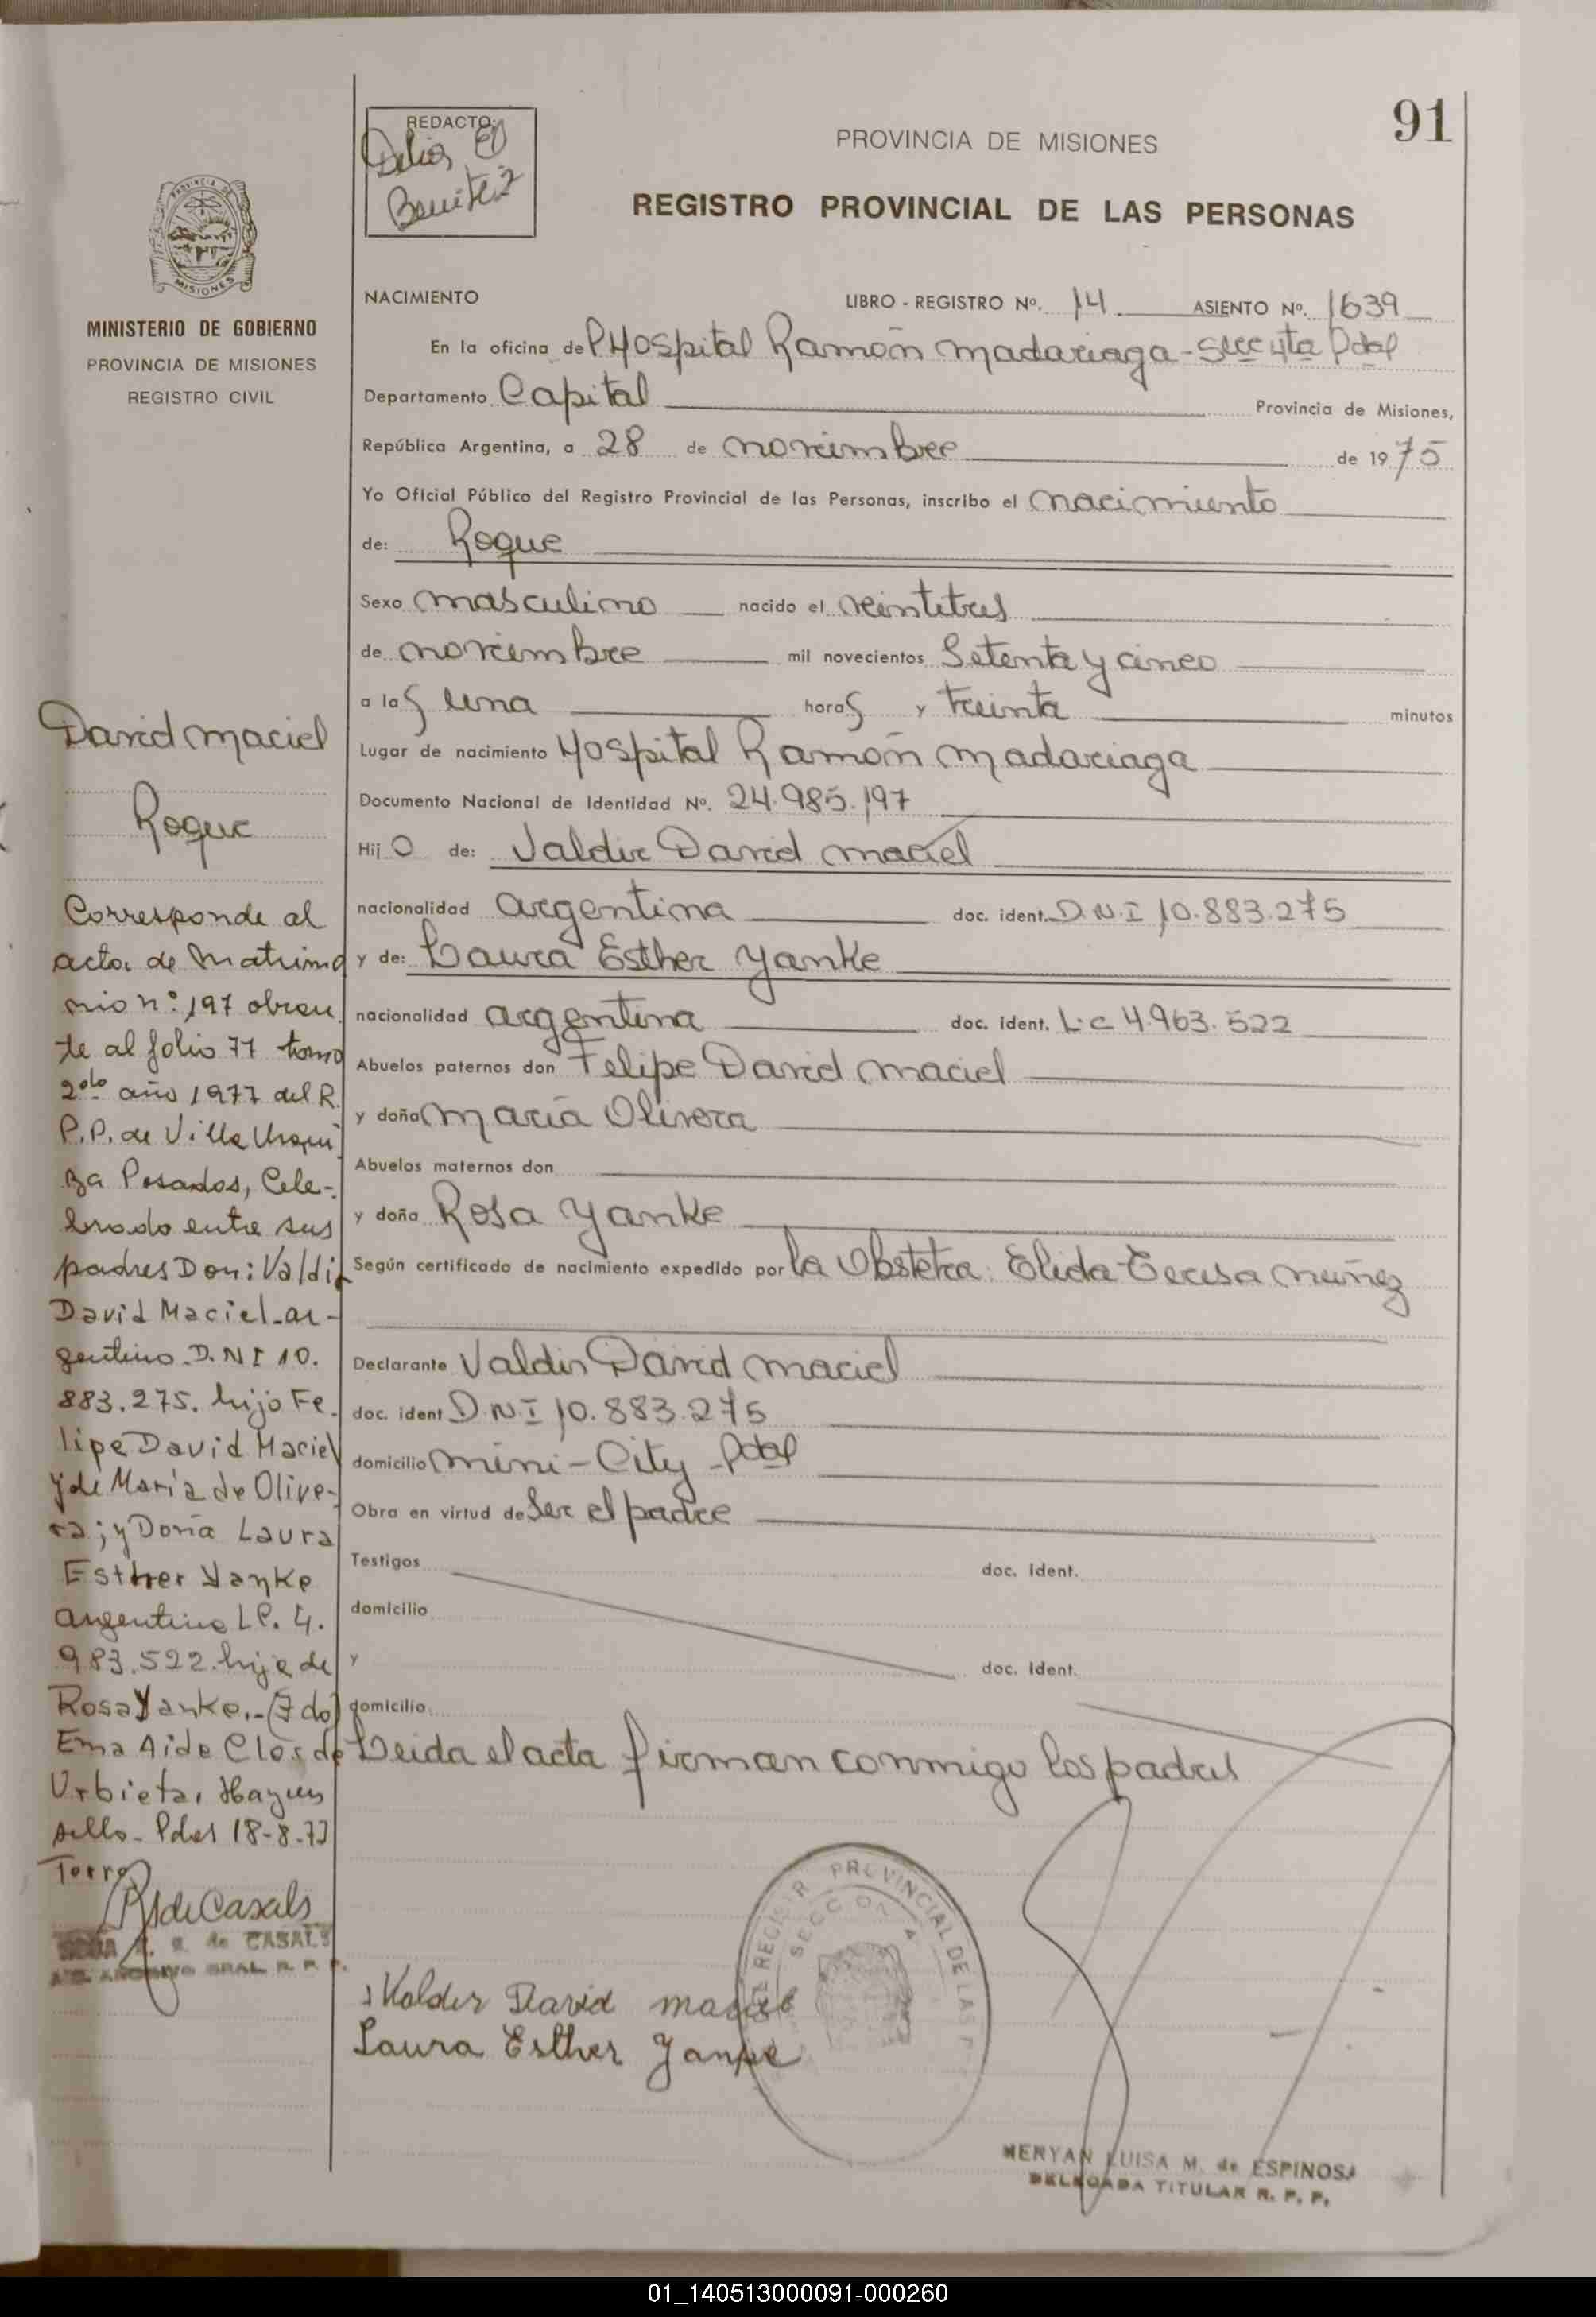 91
REDACTO:
Delia E
Benitez
PROVINCIA DE MISIONES
REGISTRO PROVINCIAL DE LAS PERSONAS
PROVINCIA DE
MISIONES
MINISTERIO DE GOBIERNO
PROVINCIA DE MISIONES
REGISTRO CIVIL
NACIMIENTO LIBRO - REGISTRO Nº. 14 ASIENTO Nº. 1639
En la oficina de Hospital Ramón Madariaga - Secc 4ta Pdas
Departamento Capital Provincia de Misiones,
República Argentina, a 28 de noviembre de 1975
Yo Oficial Público del Registro Provincial de las Personas, inscribo el nacimiento
de: Roque
Sexo masculino nacido el veintitres
de noviembre mil novecientos Setenta y cinco
a las una horas y treinta minutos
Lugar de nacimiento Hospital Ramón Madariaga
Documento Nacional de Identidad Nº. 24.985.197
Hijo de: Valdir David Maciel
nacionalidad argentina doc. ident. D.N.I 10.883.275
y de: Laura Esther Yanke
nacionalidad argentina doc. ident. L.C 4.963.522
Abuelos paternos don Felipe David Maciel
y doña María Olivera
Abuelos maternos don
y doña Rosa Yanke
Según certificado de nacimiento expedido por la Obstetra Elida Teresa Nuñez
Declarante Valdir David Maciel
doc. ident D.N.I 10.883.275
domicilio Mini-City Pdas
Obra en virtud de Ser el padre
Testigos doc. ident.
domicilio
y doc. ident.
domicilio
Leida el acta firman conmigo los padres
David Maciel
Roque
Corresponde al
acta de Matrimo
nio nº 197 obran
te al folio 77 tomo
2do año 1977 del R.
P.P. de Villa Urqui
za Posadas, Cele-
brado entre sus
padres Don: Valdir
David Maciel-ar-
gentino D.N I 10.
883.275. hijo Fe
lipe David Maciel
y de María de Olive-
ra; y Doña Laura
Esther Yanke
argentina L.C. 4.
983.522. hija de
Rosa Yanke.-(Fdo)
Ema Aide Clos de
Urbieta, Hay un
sello- Pdas 18-8-77
Torre
R de Casals
de CASALS
ARCHIVO GRAL R. P. P.
Valdir David Maciel
Laura Esther Yanke
REGISTRO PROVINCIAL DE LAS P
SECCION 4
NERYAN LUISA M. de ESPINOSA
DELEGADA TITULAR R. P. P.
01_140513000091-000260